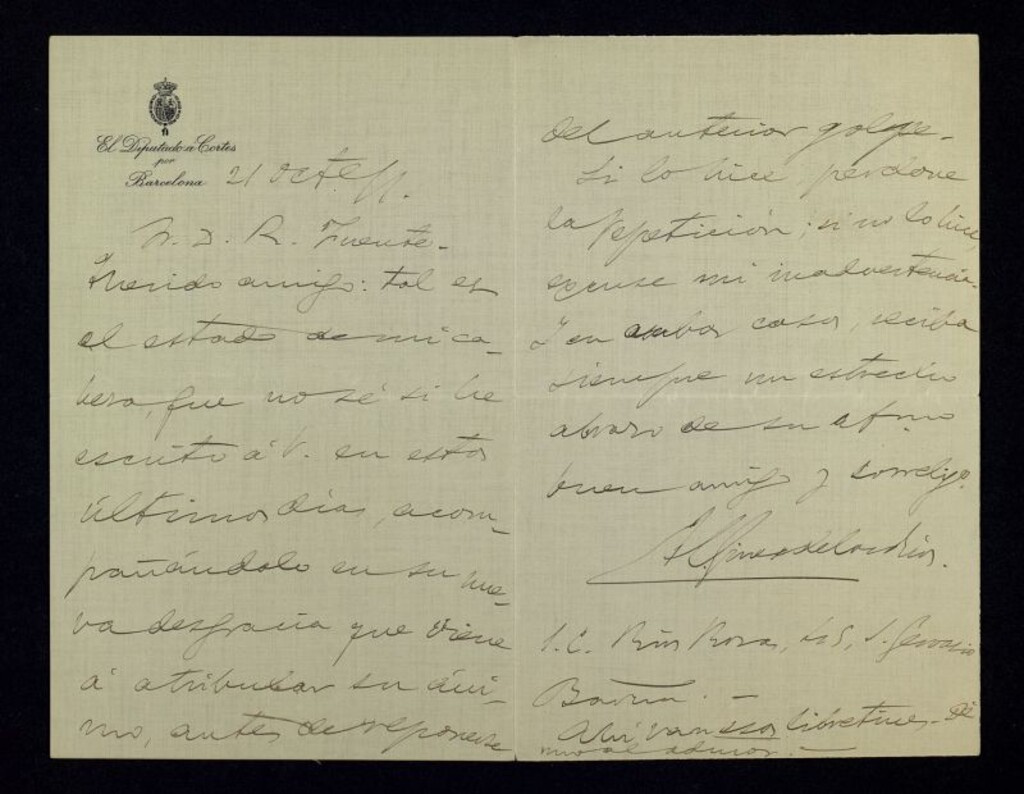 El Diputado á Cortes
por
Barcelona
21 Octe 11.
S. D. R. Fuente.
Querido amigo: tal es
el estado de mi ca-
beza, que no sé si he
escrito á V. en estos
últimos días, acom-
pañándole en su nue-
va desgracia que viene
á atribular su áni-
mo, antes de reponerse
del anterior golpe.
Si lo hice, perdone
la repetición; si no lo hice,
excuse mi inadvertencia.
Y en ambos casos, reciba
siempre un estrecho
abrazo de su afmo
buen amigo y correlig.
H. Giner de los Ríos.
S. C. Ríos Rosas, S. Gervasio
Barna. —
Ahí van esos